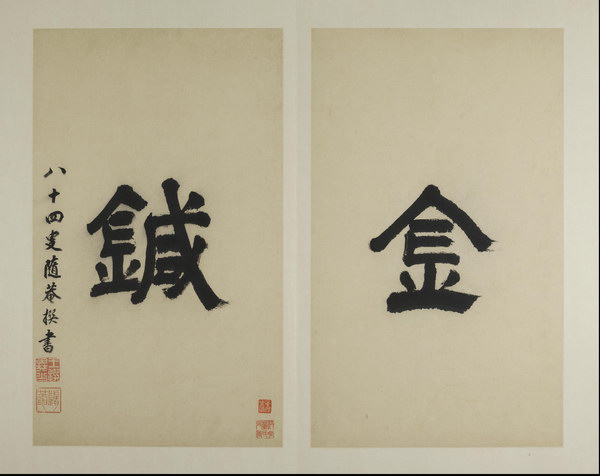 金
鍼
八十四叟隨菴撰書